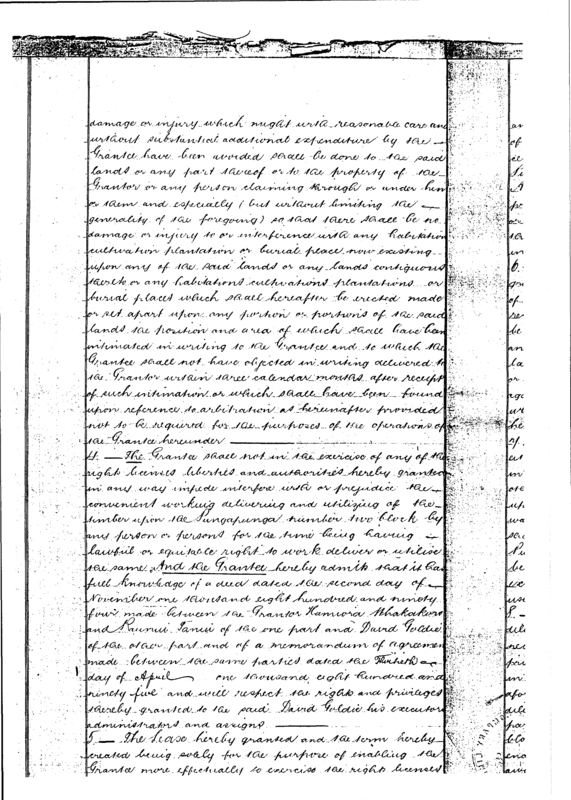 damage or injury which might with reasonable care and
without substantial additional expenditure by the
Grantee have been avoided shall be done to the said
lands or any part thereof or to the property of the
Grantor or any person claiming through or under him
or them and especially (but without limiting the
generality of the foregoing) so that there shall be no
damage or injury to or interference with any habitation
cultivation plantation or burial place now existing
upon any of the said lands or any lands contiguous
thereto or any habitations cultivations plantations or
burial places which shall hereafter be erected made
or set apart upon any portion or portions of the said
lands the position and area of which shall have been
intimated in writing to the Grantee and to which the
Grantee shall not have objected in writing delivered to
the Grantor within three calendar months after receipt
of such intimation or which shall have been found
upon reference to arbitration as hereinafter provided
not to be required for the purposes of the operations of
the Grantee hereunder
4. The Grantee shall not in the exercise of any of the
right licenses liberties and authorities hereby granted
in any way impede interfere with or prejudice the
convenient working delivering and utilizing of the
timber upon the Pungapunga number two block by
any person or persons for the time being having
lawful or equitable right to work deliver or utilise
the same And the Grantee hereby admits that it has
full knowledge of a deed dated the second day of
November one thousand eight hundred and ninety
four made between the Grantor Hamiora Whakakoro
and Tanui of the one part and David Goldie
of the other part and of a memorandum of agreement
made between the same parties dated the Thirtieth
day of April one thousand eight hundred and
ninety five and will respect the rights and privileges
thereby granted to the said David Goldie his executors
administrators and assigns
5. The Lease hereby granted and the term hereby
created being solely for the purpose of enabling the
Grantee more effectually to exercise the right licenses